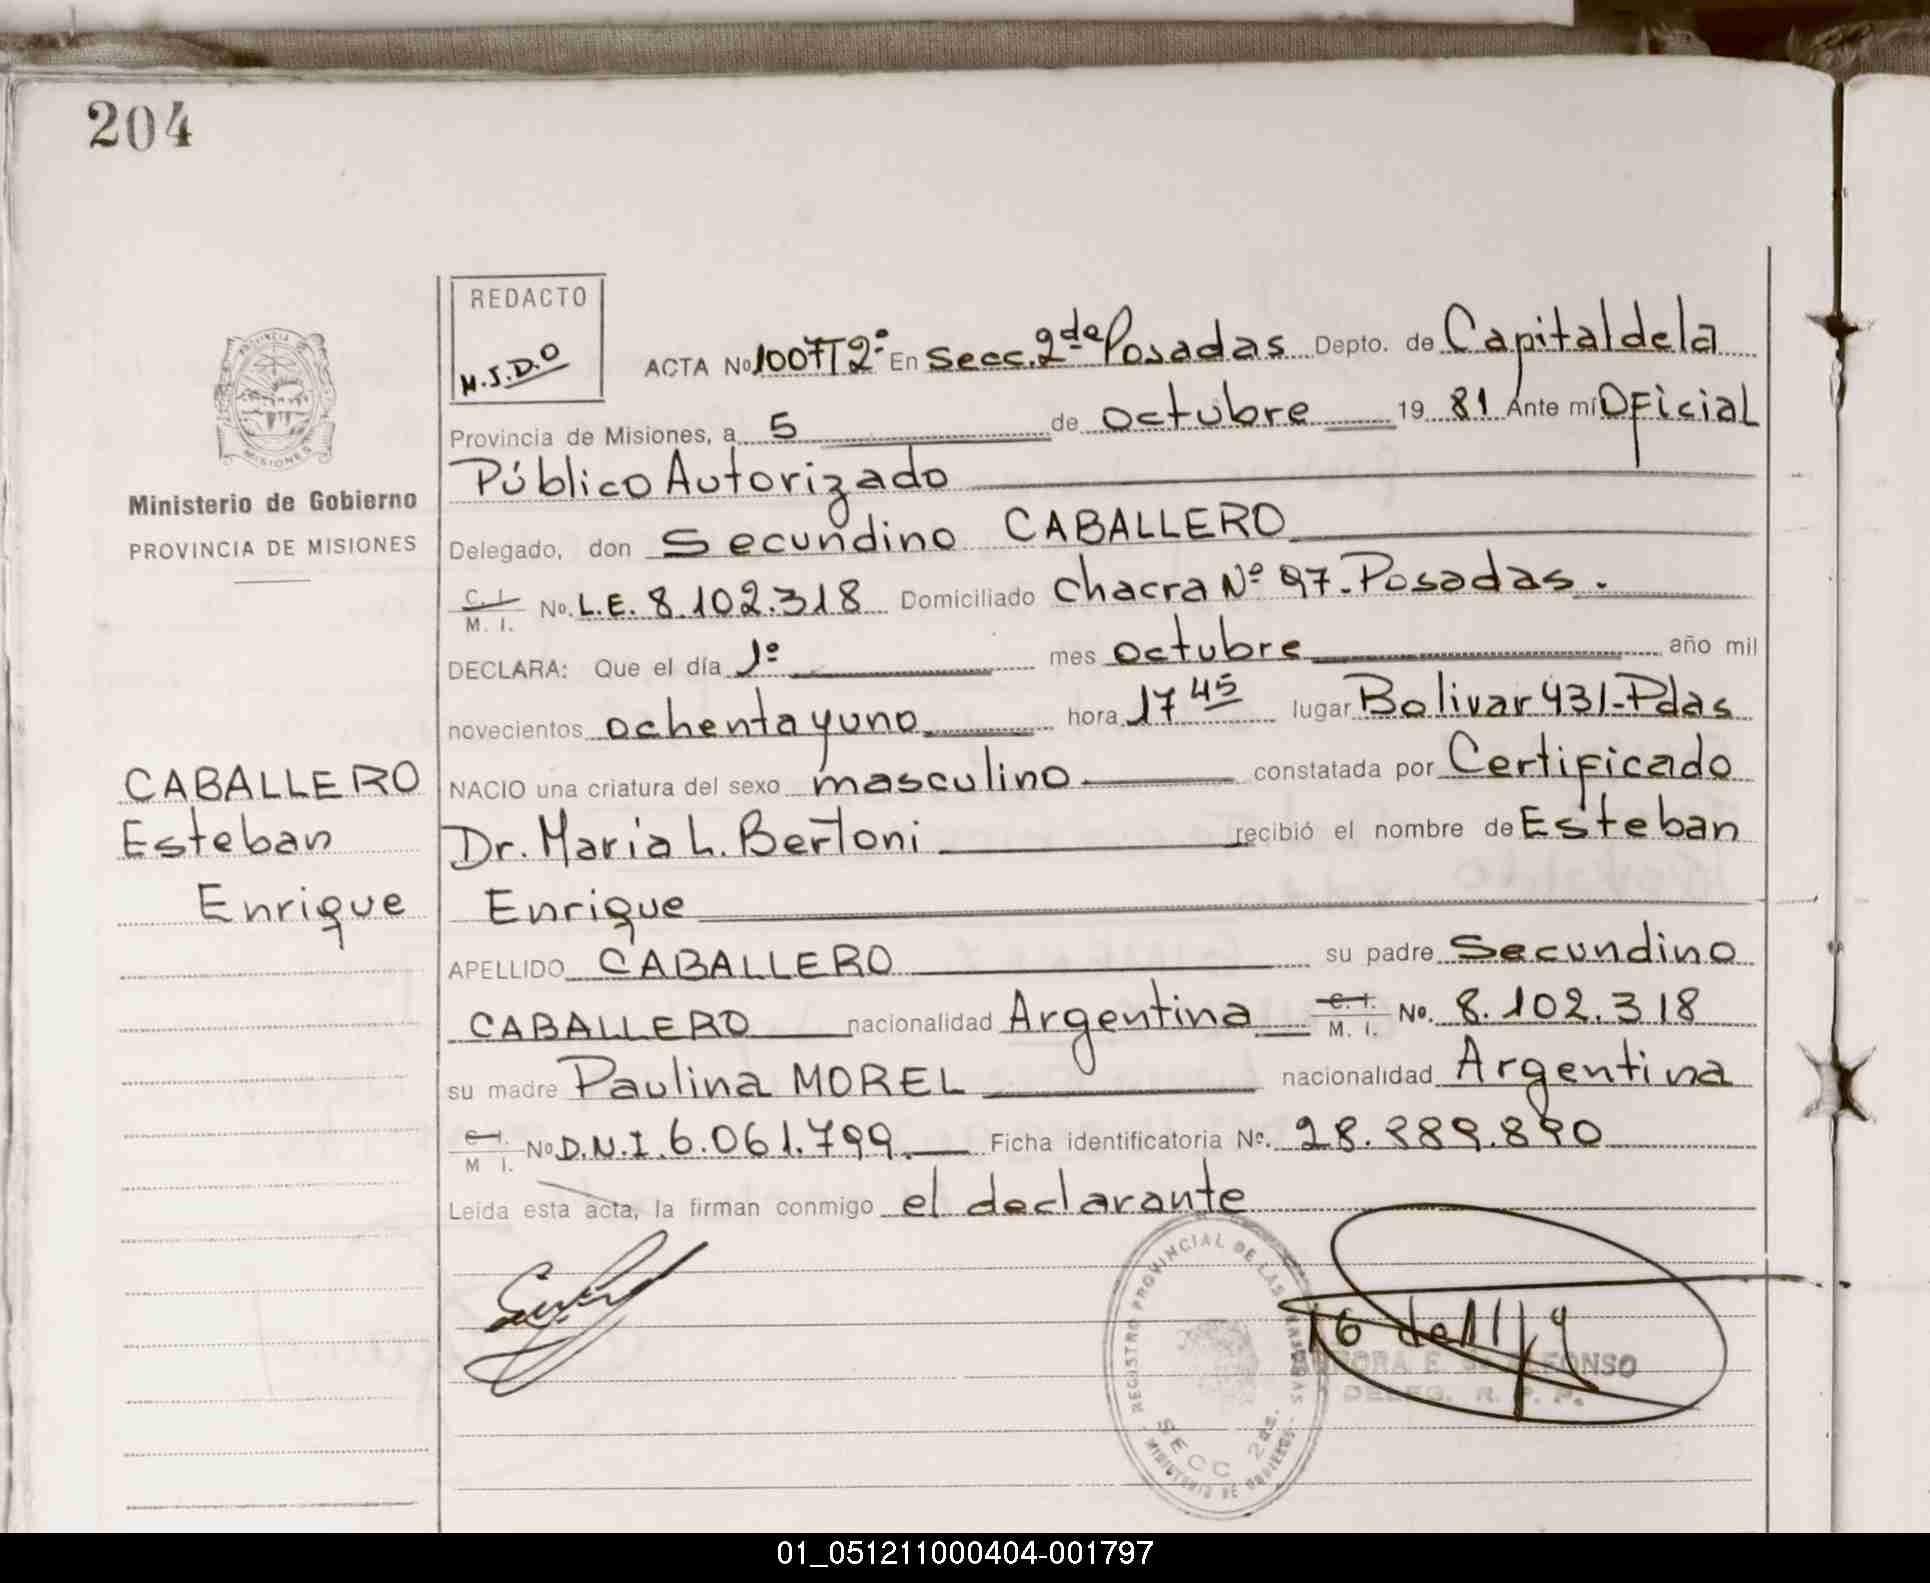 204
REDACTO
M.S.D.O
ACTA No 1007 T 2º En Secc. 2da Posadas Depto. de Capital de la
Provincia de Misiones, a 5 de octubre 19 81 Ante mí Oficial
Público Autorizado
Delegado, don Secundino CABALLERO
C. I. M. I. No. L.E. 8.102.318 Domiciliado Chacra Nº 97-Posadas.
DECLARA: Que el día 1º mes octubre año mil
novecientos ochenta y uno hora 17 45 lugar Bolivar 431-Pdas
NACIO una criatura del sexo masculino constatada por Certificado
Dr. Maria L. Bertoni recibió el nombre de Esteban
Enrique
APELLIDO CABALLERO su padre Secundino
CABALLERO nacionalidad Argentina C. I. M. I. No. 8.102.318
su madre Paulina MOREL nacionalidad Argentina
C. I. M I. No D.N.I. 6.061.799. Ficha identificatoria Nº. 28.889.890
Leída esta acta, la firman conmigo el declarante
PROVINCIA DE MISIONES
Ministerio de Gobierno
PROVINCIA DE MISIONES
CABALLERO
Esteban
Enrique
REGISTRO PROVINCIAL DE LAS PERSONAS
SECC 2da.
MINISTERIO DE GOBIERNO
DELEG. R. P. P.
01_051211000404-001797